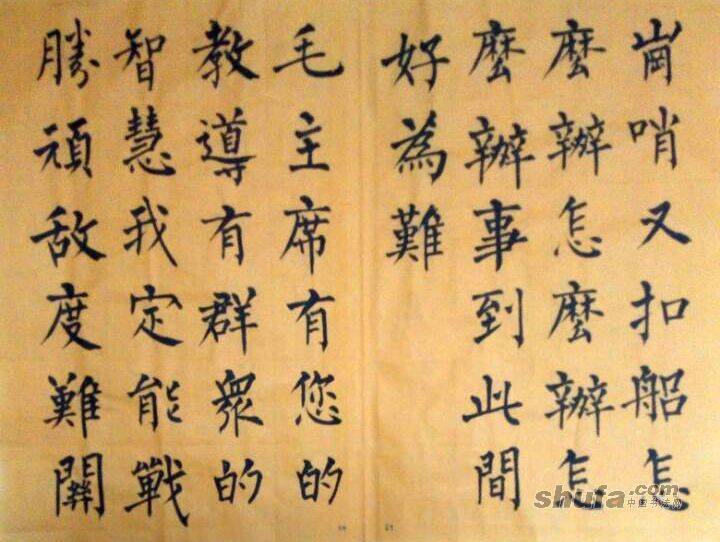 崗哨又扣船怎
麼辦怎麼辦怎
麼辦事到此間
好為難
毛主席有您的
教導有群眾的
智慧我定能戰
勝頑敌度難關
shufa.com
中国书法网